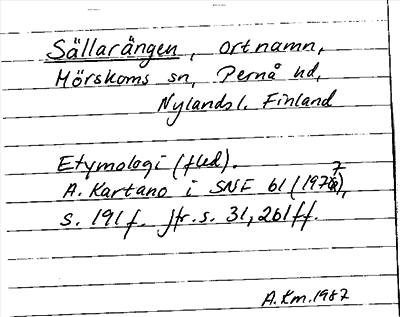 Sällarängen, ortnamn,
Mörskoms sn, Pernå hd,
Nylands l. Finland
Etymologi (fled).
A. Kartano i SNF 61 (1977),
s. 191 f. Jfr. s. 31, 261 ff.
A.Km.1987